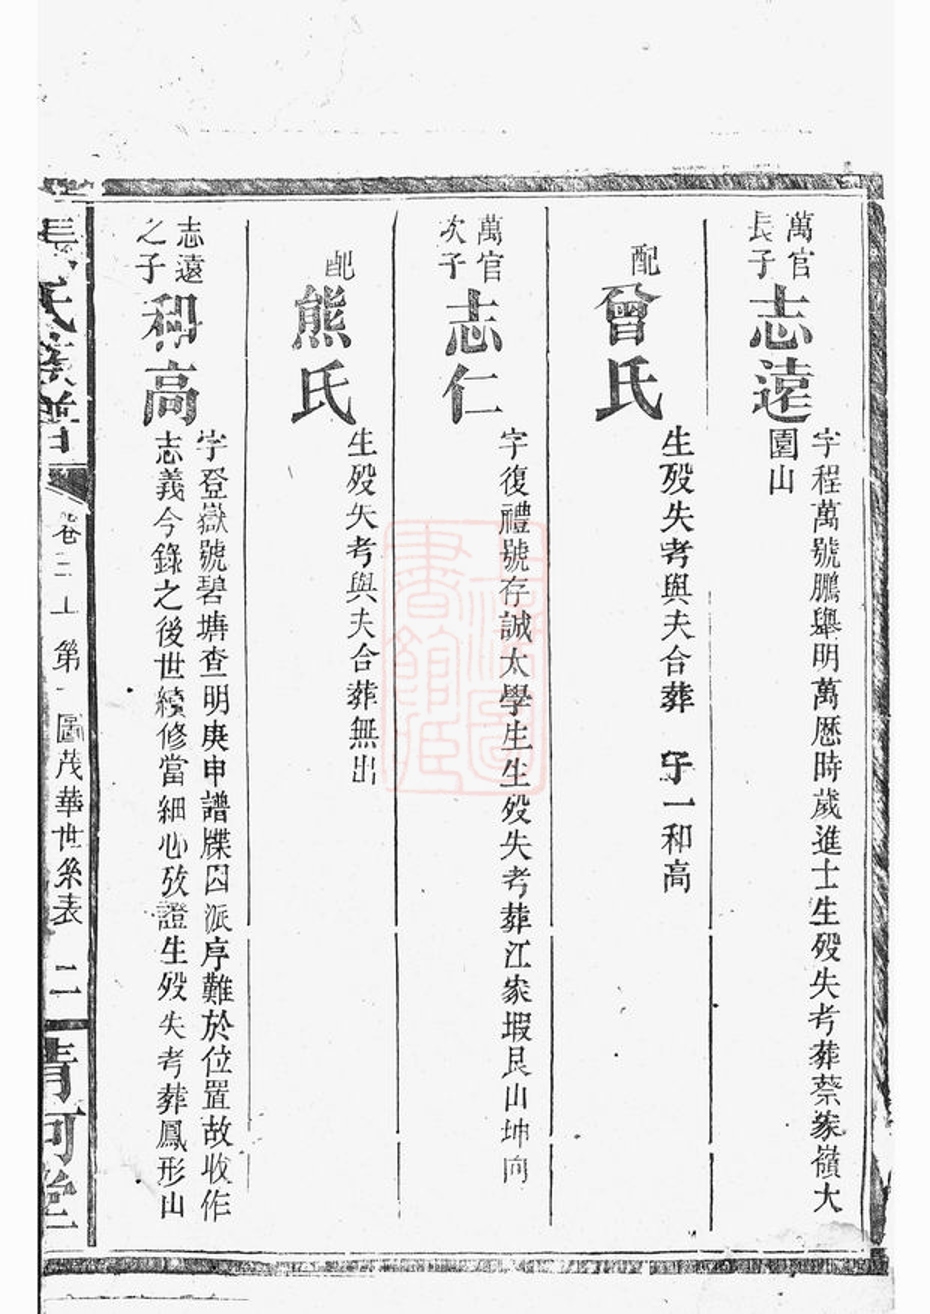 萬官
長子
志遠
字程萬號鵬舉明萬歷時歲進士生歿失考葬蔡家嶺大
園山
配
曾氏
生歿失考與夫合葬 子一和高
萬官
次子
志仁
字復禮號存誠太學生生歿失考葬江家塅艮山坤向
配
熊氏
生歿失考與夫合葬無出
志遠
之子
和高
字登嶽號碧塘查明庚申譜牒因派序難於位置故收作
志義今錄之後世續修當細心攷證生歿失考葬鳳形山
張氏族譜
卷三上 第一圖茂華世系表
二
清河堂